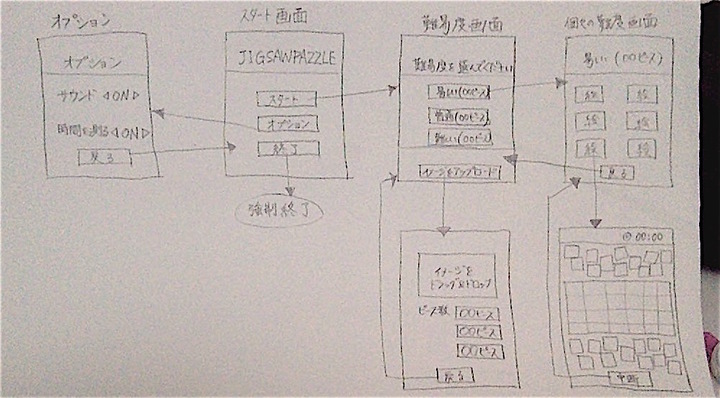 オプション
オプション
サウンド ◁ON▷
時間を測る ◁ON▷
戻る
スタート画面
JIGSAWPAZZLE
スタート
オプション
終了
強制終了
難易度画面
難易度を選んでください
易しい(〇〇ピース)
普通(〇〇ピース)
難しい(〇〇ピース)
イメージをアップロード
イメージを
ドラッグ&ドロップ
ピース数 〇〇ピース
〇〇ピース
〇〇ピース
戻る
個々の難易度画面
易しい(〇〇ピース)
絵 絵
絵 絵
絵 絵
戻る
00:00
中断